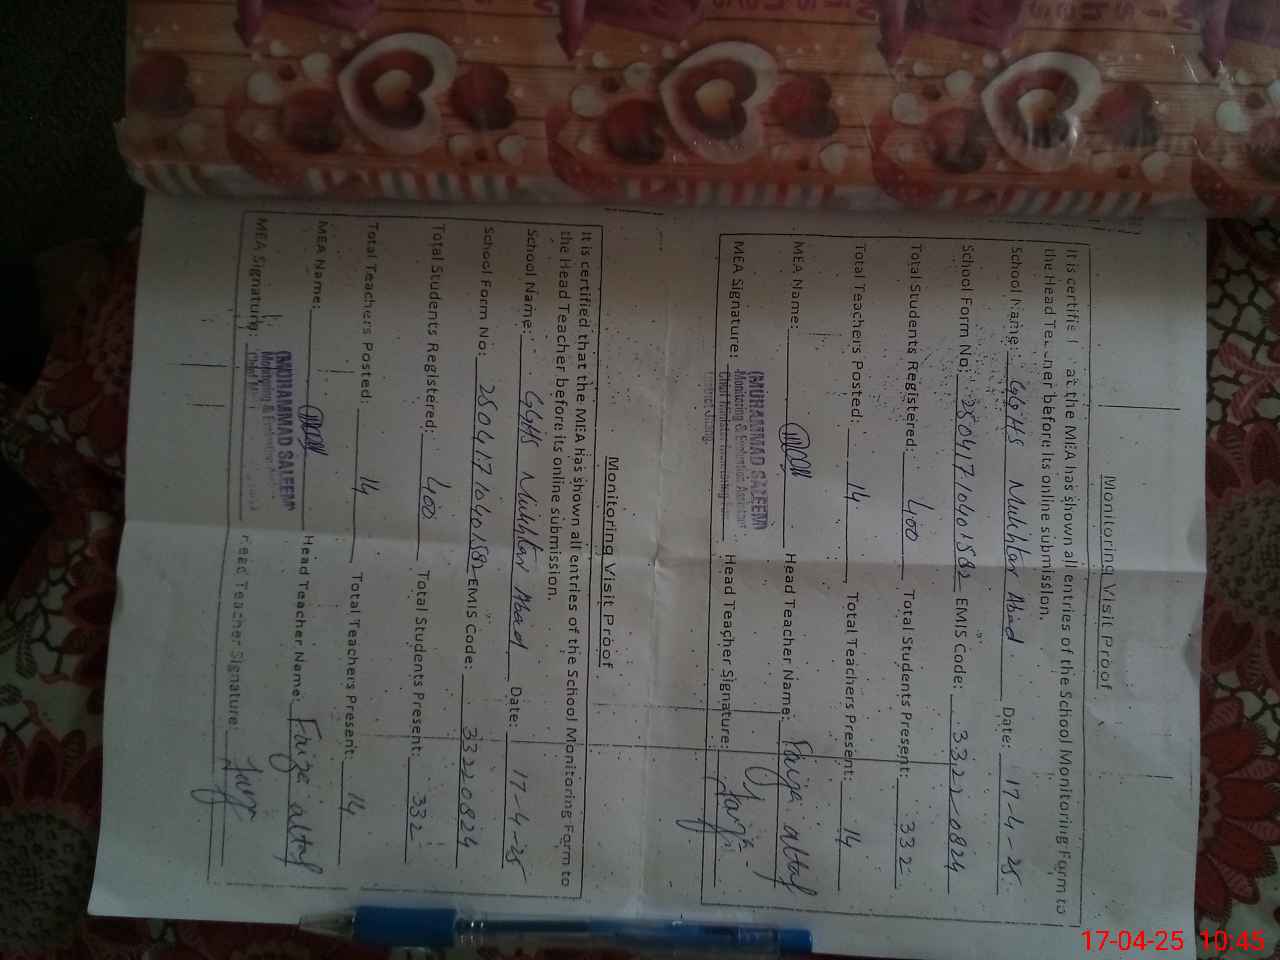 Monitoring Visit Proof
It is certifie at the MEA has shown all entries of the School Monitoring Form to
the Head Teacher before its online submission.
School Name: GGHS Mukhtar Abad Date: 17-4-25
School Form No: 28041710401582 EMIS Code: 3322-0824
Total Students Registered: 400 Total Students Present: 332
Total Teachers Posted: 14 Total Teachers Present: 14
MEA Name: Head Teacher Name: Faiza altaf
MEA Signature: Head Teacher Signature:
(MUHAMMAD SALEEM)
Monitoring & Evaluation Assistant
Chief Minister Monitoring
Monitoring Visit Proof
It is certified that the MEA has shown all entries of the School Monitoring Form to
the Head Teacher before its online submission.
School Name: GGHS Mukhtar Abad Date: 17-4-25
School Form No: 28041710401582 EMIS Code: 33220824
Total Students Registered: 400 Total Students Present: 332
Total Teachers Posted: 14 Total Teachers Present: 14
MEA Name: Head Teacher Name: Faiza altaf
MEA Signature: Head Teacher Signature:
(MUHAMMAD SALEEM)
Monitoring & Evaluation
17-04-25 10:45